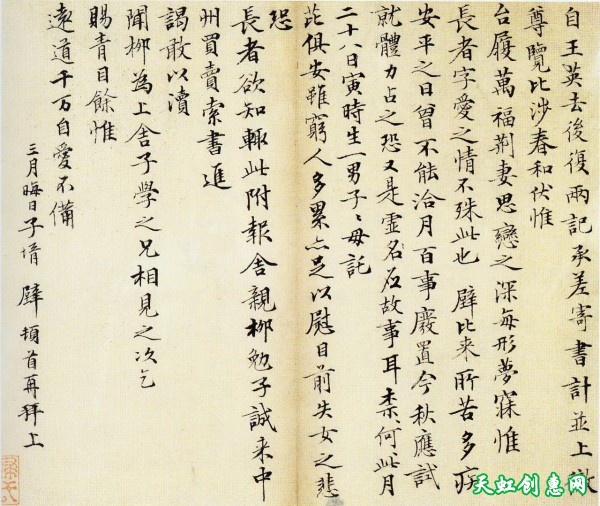 自王英去後復兩記承差寄書計並上徹
尊覽比涉春和伏惟
台履萬福荆妻思戀之深每形夢寐惟
長者字愛之情不殊此也 辟比来所苦多疾
安平之日曾不能洽月百事廢置今秋應試
就體力占之恐又是虛名應故事耳柰何此月
二十八日寅時生一男子子母託
芘俱安雖窮人多累亦足以慰目前失女之悲
恐
長者欲知輒此附報舍親柳勉子誠来中
州買賣索書進
謁敢以瀆
聞柳為上舍子學之兄相見之次乞
賜青目餘惟
遠道千万自愛不備
三月晦日子壻 辟 頓首再拜上
天虹创惠网